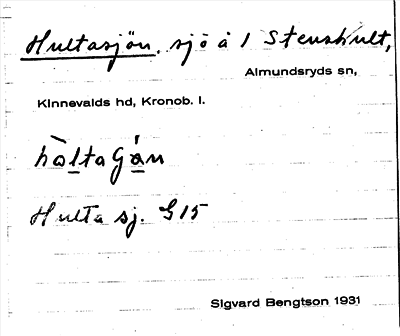 Hultasjön, sjö å 1 Stenshult,
Almundsryds sn,
Kinnevalds hd, Kronob. l.
hàltaʃá̱n
Hulta sj. G 15
Sigvard Bengtson 1931